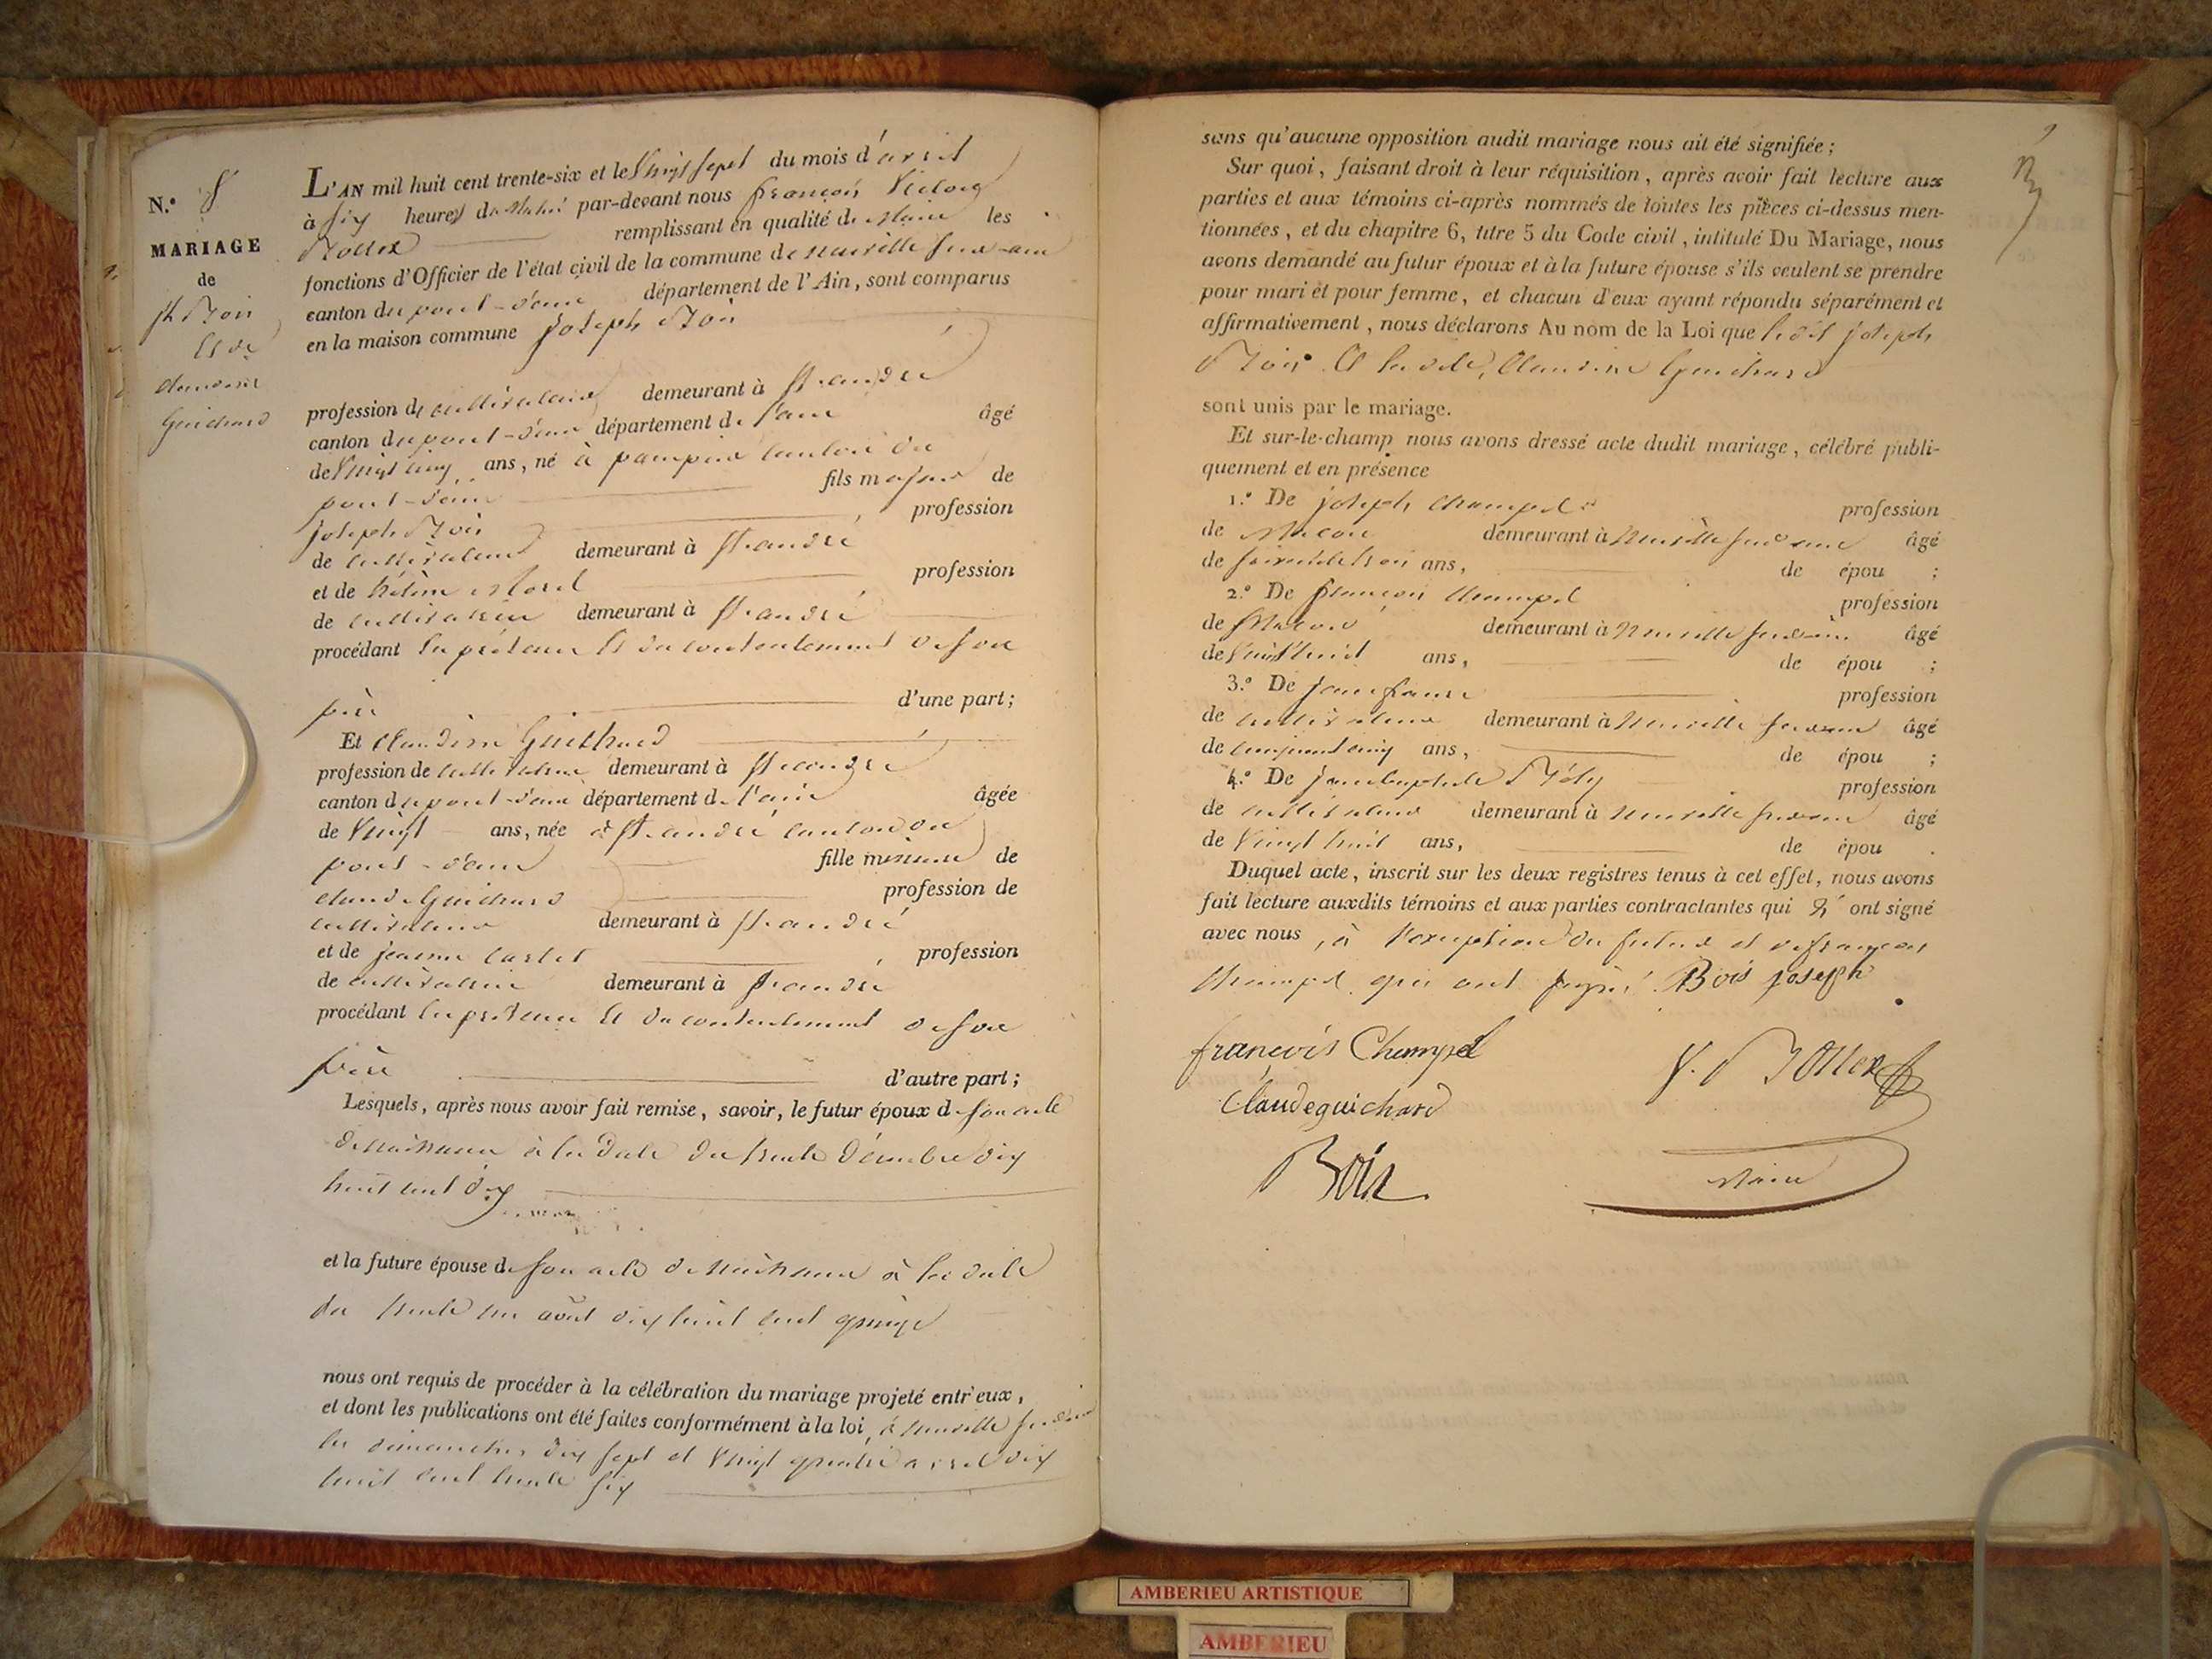 N.º 8
MARIAGE
de
jh Bois
Et de
claudine
Guichard
L'AN mil huit cent trente-six et le Vingt sept du mois d'avril
à six heures du Matin par-devant nous françois Victor
Bottex remplissant en qualité de Maire les
fonctions d'Officier de l'état civil de la commune de neuville sur ain
canton du pont-d'ain département de l'Ain, sont comparus
en la maison commune joseph Bois
profession de cultivateur demeurant à St. andré
canton du pont-d'ain département de l'ain âgé
de Vingt cinq ans, né à canton du
pont-d'ain fils majeur de
joseph Bois profession
de cultivateur demeurant à St. andré
et de hélène Morel profession
de cultivatrice demeurant à St. andré
procédant En présence Et du consentement de son
père d'une part;
Et claudine Guichard
profession de cultivatrice demeurant à St. andré
canton du pont-d'ain département de l'ain âgée
de Vingt ans, née à St. andré canton du
pont-d'ain fille mineure de
claude Guichard profession de
cultivateur demeurant à St. andré
et de jeanne profession
de cultivatrice demeurant à St. andré
procédant En présence Et du consentement de son
père d'autre part;
Lesquels, après nous avoir fait remise, savoir, le futur époux de son acte
de naissance à la date du trente décembre dix
huit cent dix
et la future épouse de son acte de naissance à la date
du trente un août dix huit cent quinze
nous ont requis de procéder à la célébration du mariage projeté entr'eux,
et dont les publications ont été faites conformément à la loi, à neuville sur ain
les dimanches dix sept et Vingt quatre avril dix
huit cent trente six
sans qu'aucune opposition audit mariage nous ait été signifiée;
Sur quoi, faisant droit à leur réquisition, après avoir fait lecture aux
parties et aux témoins ci-après nommés de toutes les pièces ci-dessus men-
tionnées, et du chapitre 6, titre 5 du Code civil, intitulé Du Mariage, nous
avons demandé au futur époux et à la future épouse s'ils veulent se prendre
pour mari et pour femme, et chacun d'eux ayant répondu séparément et
affirmativement, nous déclarons Au nom de la Loi que ledit joseph
Bois Et la dite Claudine Guichard
sont unis par le mariage.
Et sur-le-champ nous avons dressé acte dudit mariage, célébré publi-
quement et en présence
1.º De joseph Champel profession
de Macon demeurant à Neuville sur ain âgé
de soixante trois ans, de épou ;
2.º De françois Champel profession
de Macon demeurant à Neuville sur ain âgé
de Vingt huit ans, de épou ;
3.º De profession
de cultivateur demeurant à Neuville sur ain âgé
de cinquante cinq ans, de épou ;
4.º De jean baptiste profession
de cultivateur demeurant à Neuville sur ain âgé
de Vingt huit ans, de épou .
Duquel acte, inscrit sur les deux registres tenus à cet effet, nous avons
fait lecture auxdits témoins et aux parties contractantes qui n' ont signé
avec nous, à l'exception du futur et de françois
Champel qui ont signé. Bois joseph
françois Champel
V. Bottex
Claude guichard
Bois
Maire
AMBERIEU ARTISTIQUE
AMBERIEU